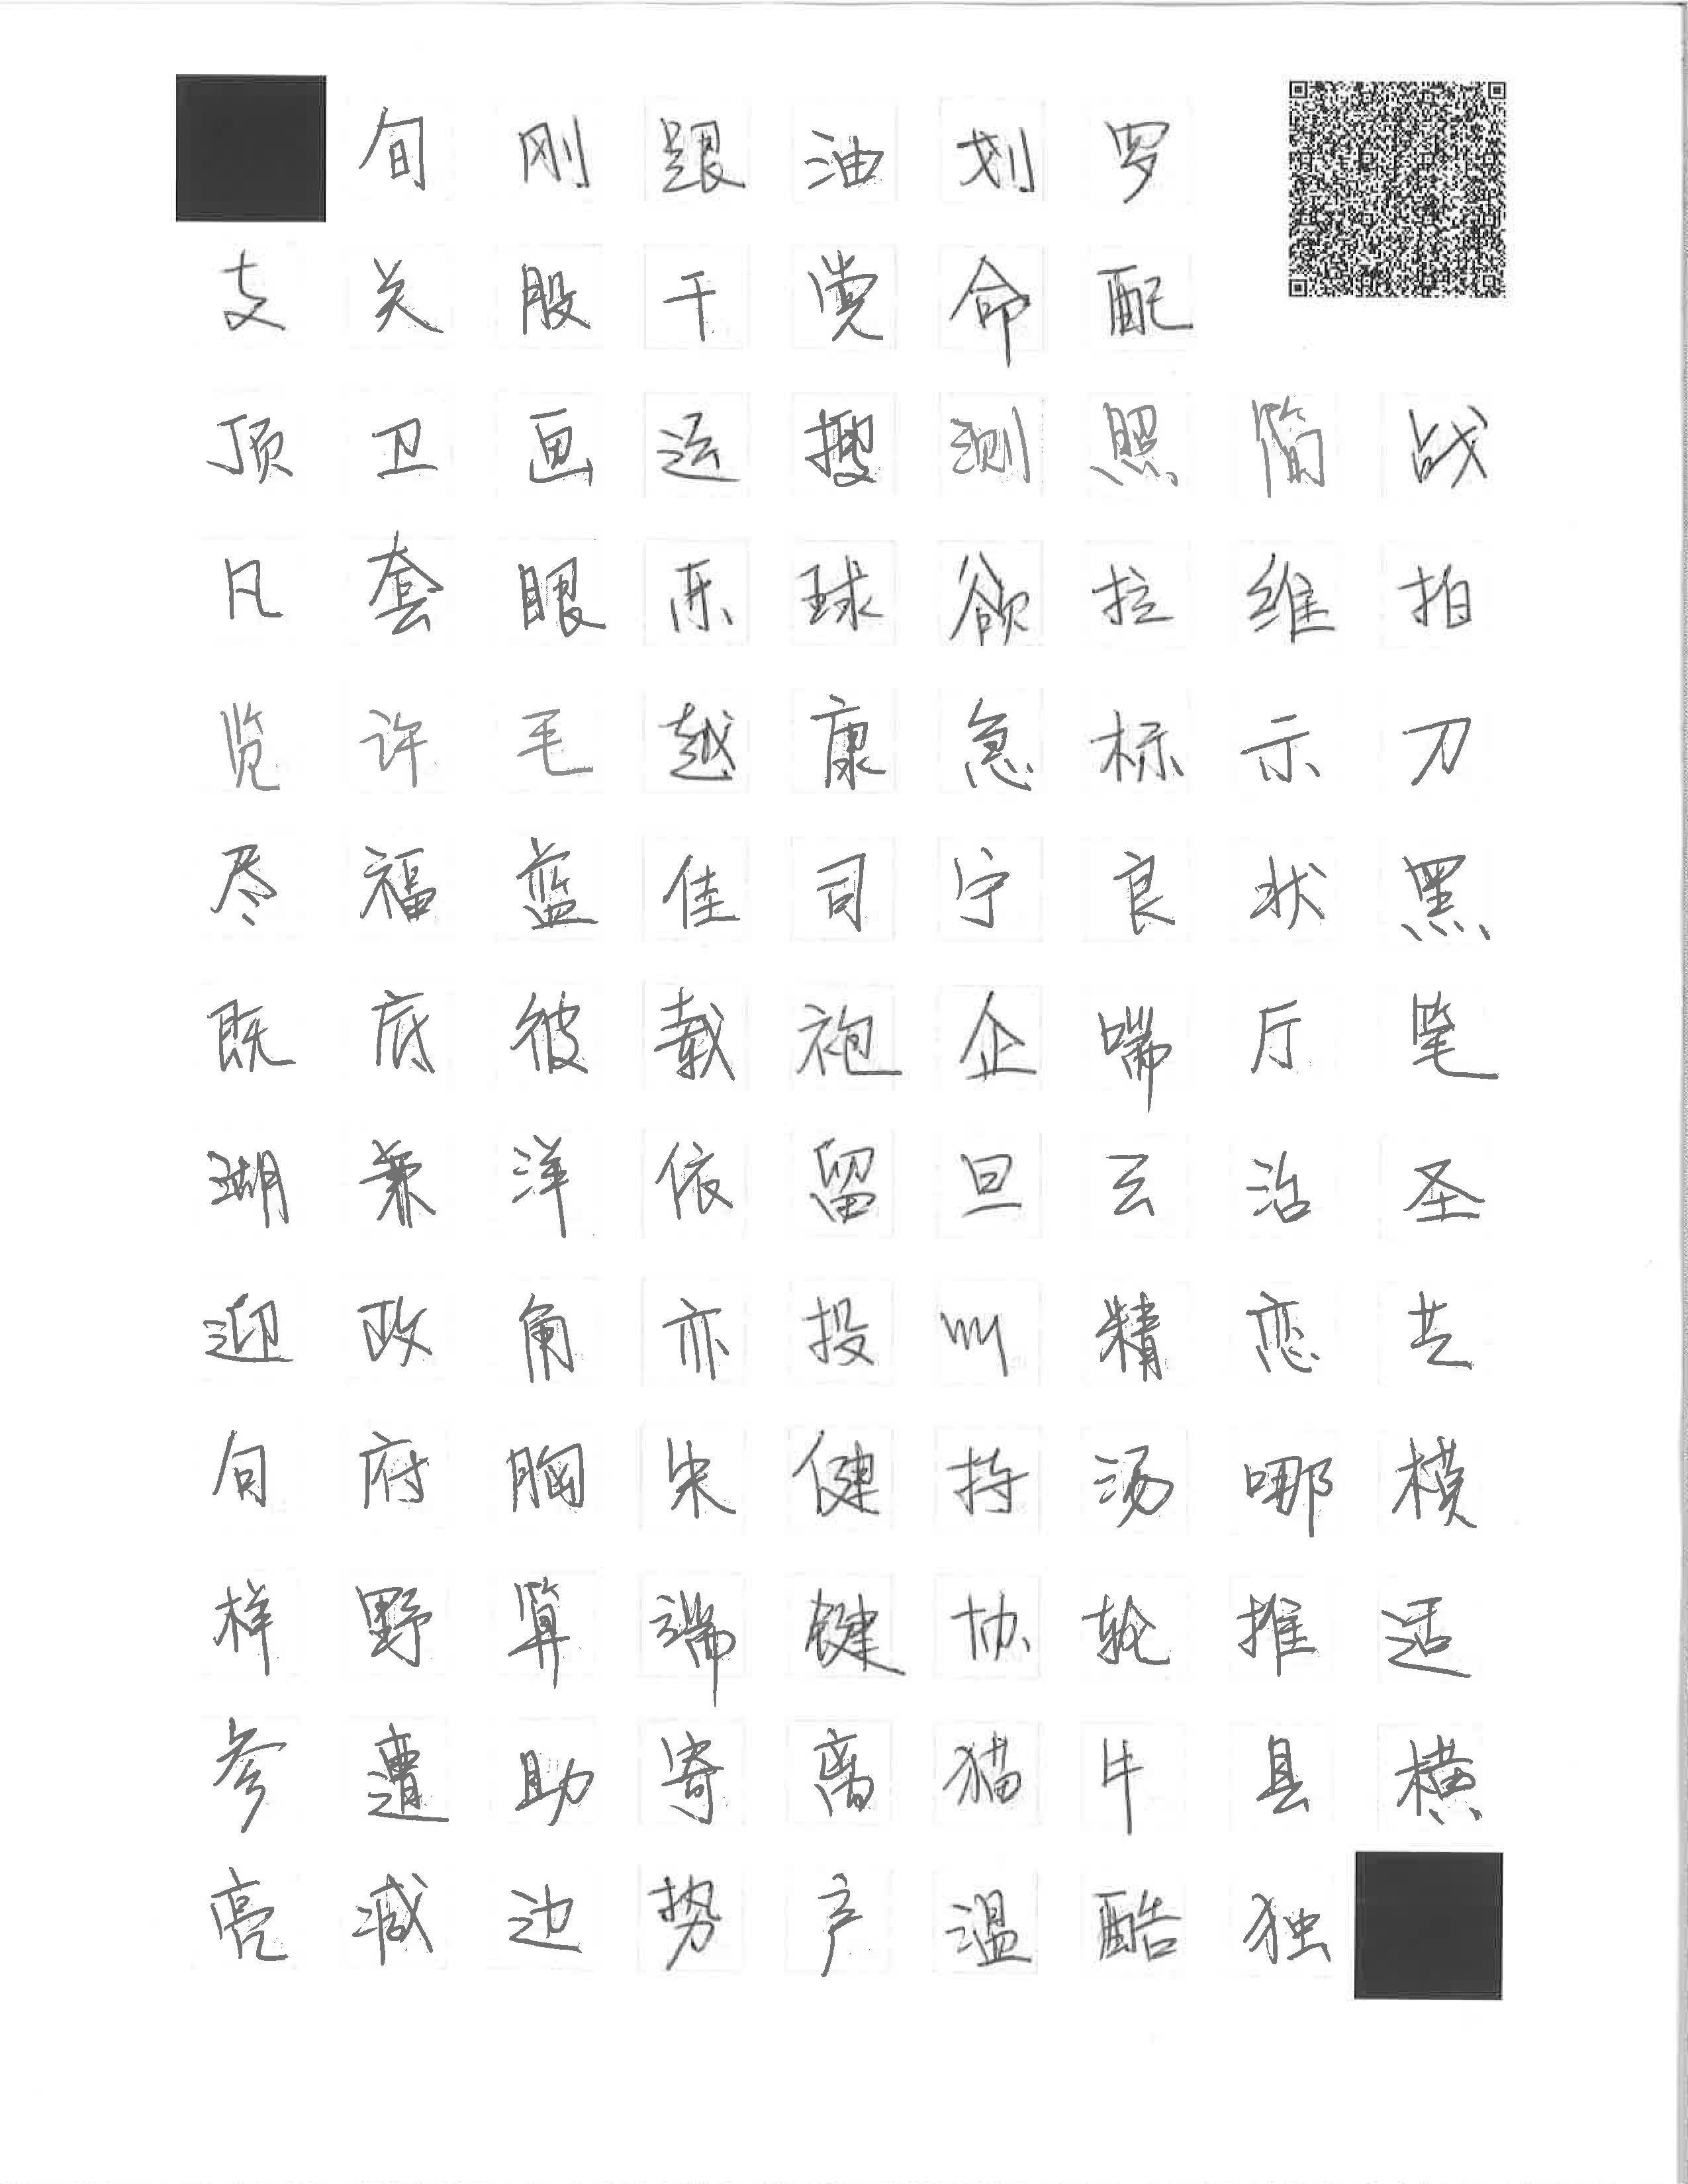 旬刚跟油划罗
支关股干党命配
顶卫画运搜测照简战
凡套眼乐球欲拉维拍
览许毛越康急标示刀
尽福蓝佳司宁良状黑
既底彼载袍企喘厅笔
湖兼洋依留旦云活圣
迎政角亦投叫精恋共
句府胸朱健持汤哪模
样野算端键协轮推适
参遭助寄离猫牛县横
亮减边势产温酷独